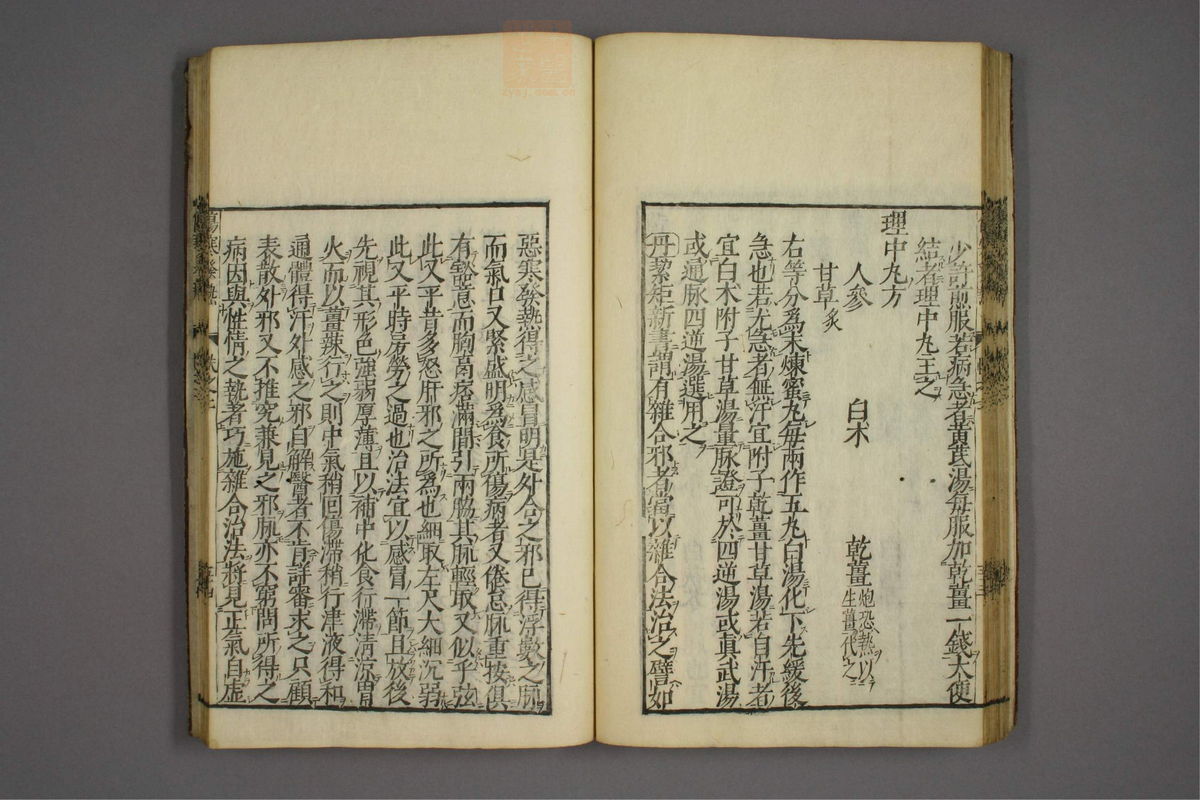 少許煎服若病急者黃芪湯每服加乾薑一錢大便
結者理中丸主之
理中丸方
人參 白朮 乾薑炮恐熱以生薑代之
甘草炙
右等分為末煉蜜丸每兩作五丸白湯化下先緩後
急也若无急者無汗宜附子乾薑甘草湯若自汗者
宜白朮附子甘草湯量脉證可於四逆湯或真武湯
或通脉四逆湯選用之
丹絜矩新書謂有雜合邪者當以雜合法治之譬如
惡寒發熱得之感冒明是外合之邪已得浮數之脉
而氣口又緊盛明為食所傷病者又倦怠脉重按俱
有澁意而胸膈痞滿間引兩脇其脉輕取又似乎弦
此又平昔多怒肝邪之所為也細取左尺大細沉弱
此又平時房勞之過也治法宜以感冒一節且放後
先視其形色強弱厚薄且以補中化食行滯清涼胃
火而以薑辣行之則中氣稍回傷滯稍行津液得和
通體得汗外感之邪自解醫者不肯詳審求之只顧
表散外邪又不推究兼見之邪脉亦不窮問所得之
病因與性情之執著巧施雜合治法將見正氣自虛